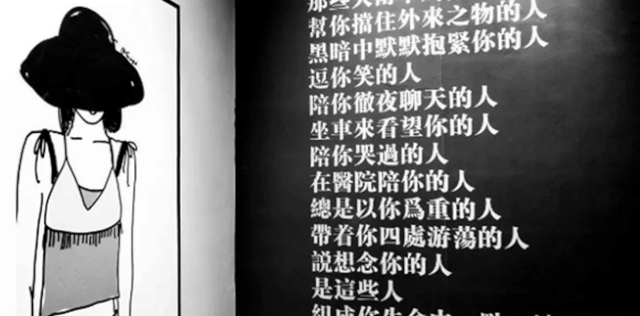 幫你擋住外來之物的人
黑暗中默默抱緊你的人
逗你笑的人
陪你徹夜聊天的人
坐車來看望你的人
陪你哭過的人
在醫院陪你的人
總是以你爲重的人
帶着你四處游蕩的人
説想念你的人
是這些人
組成你生命中